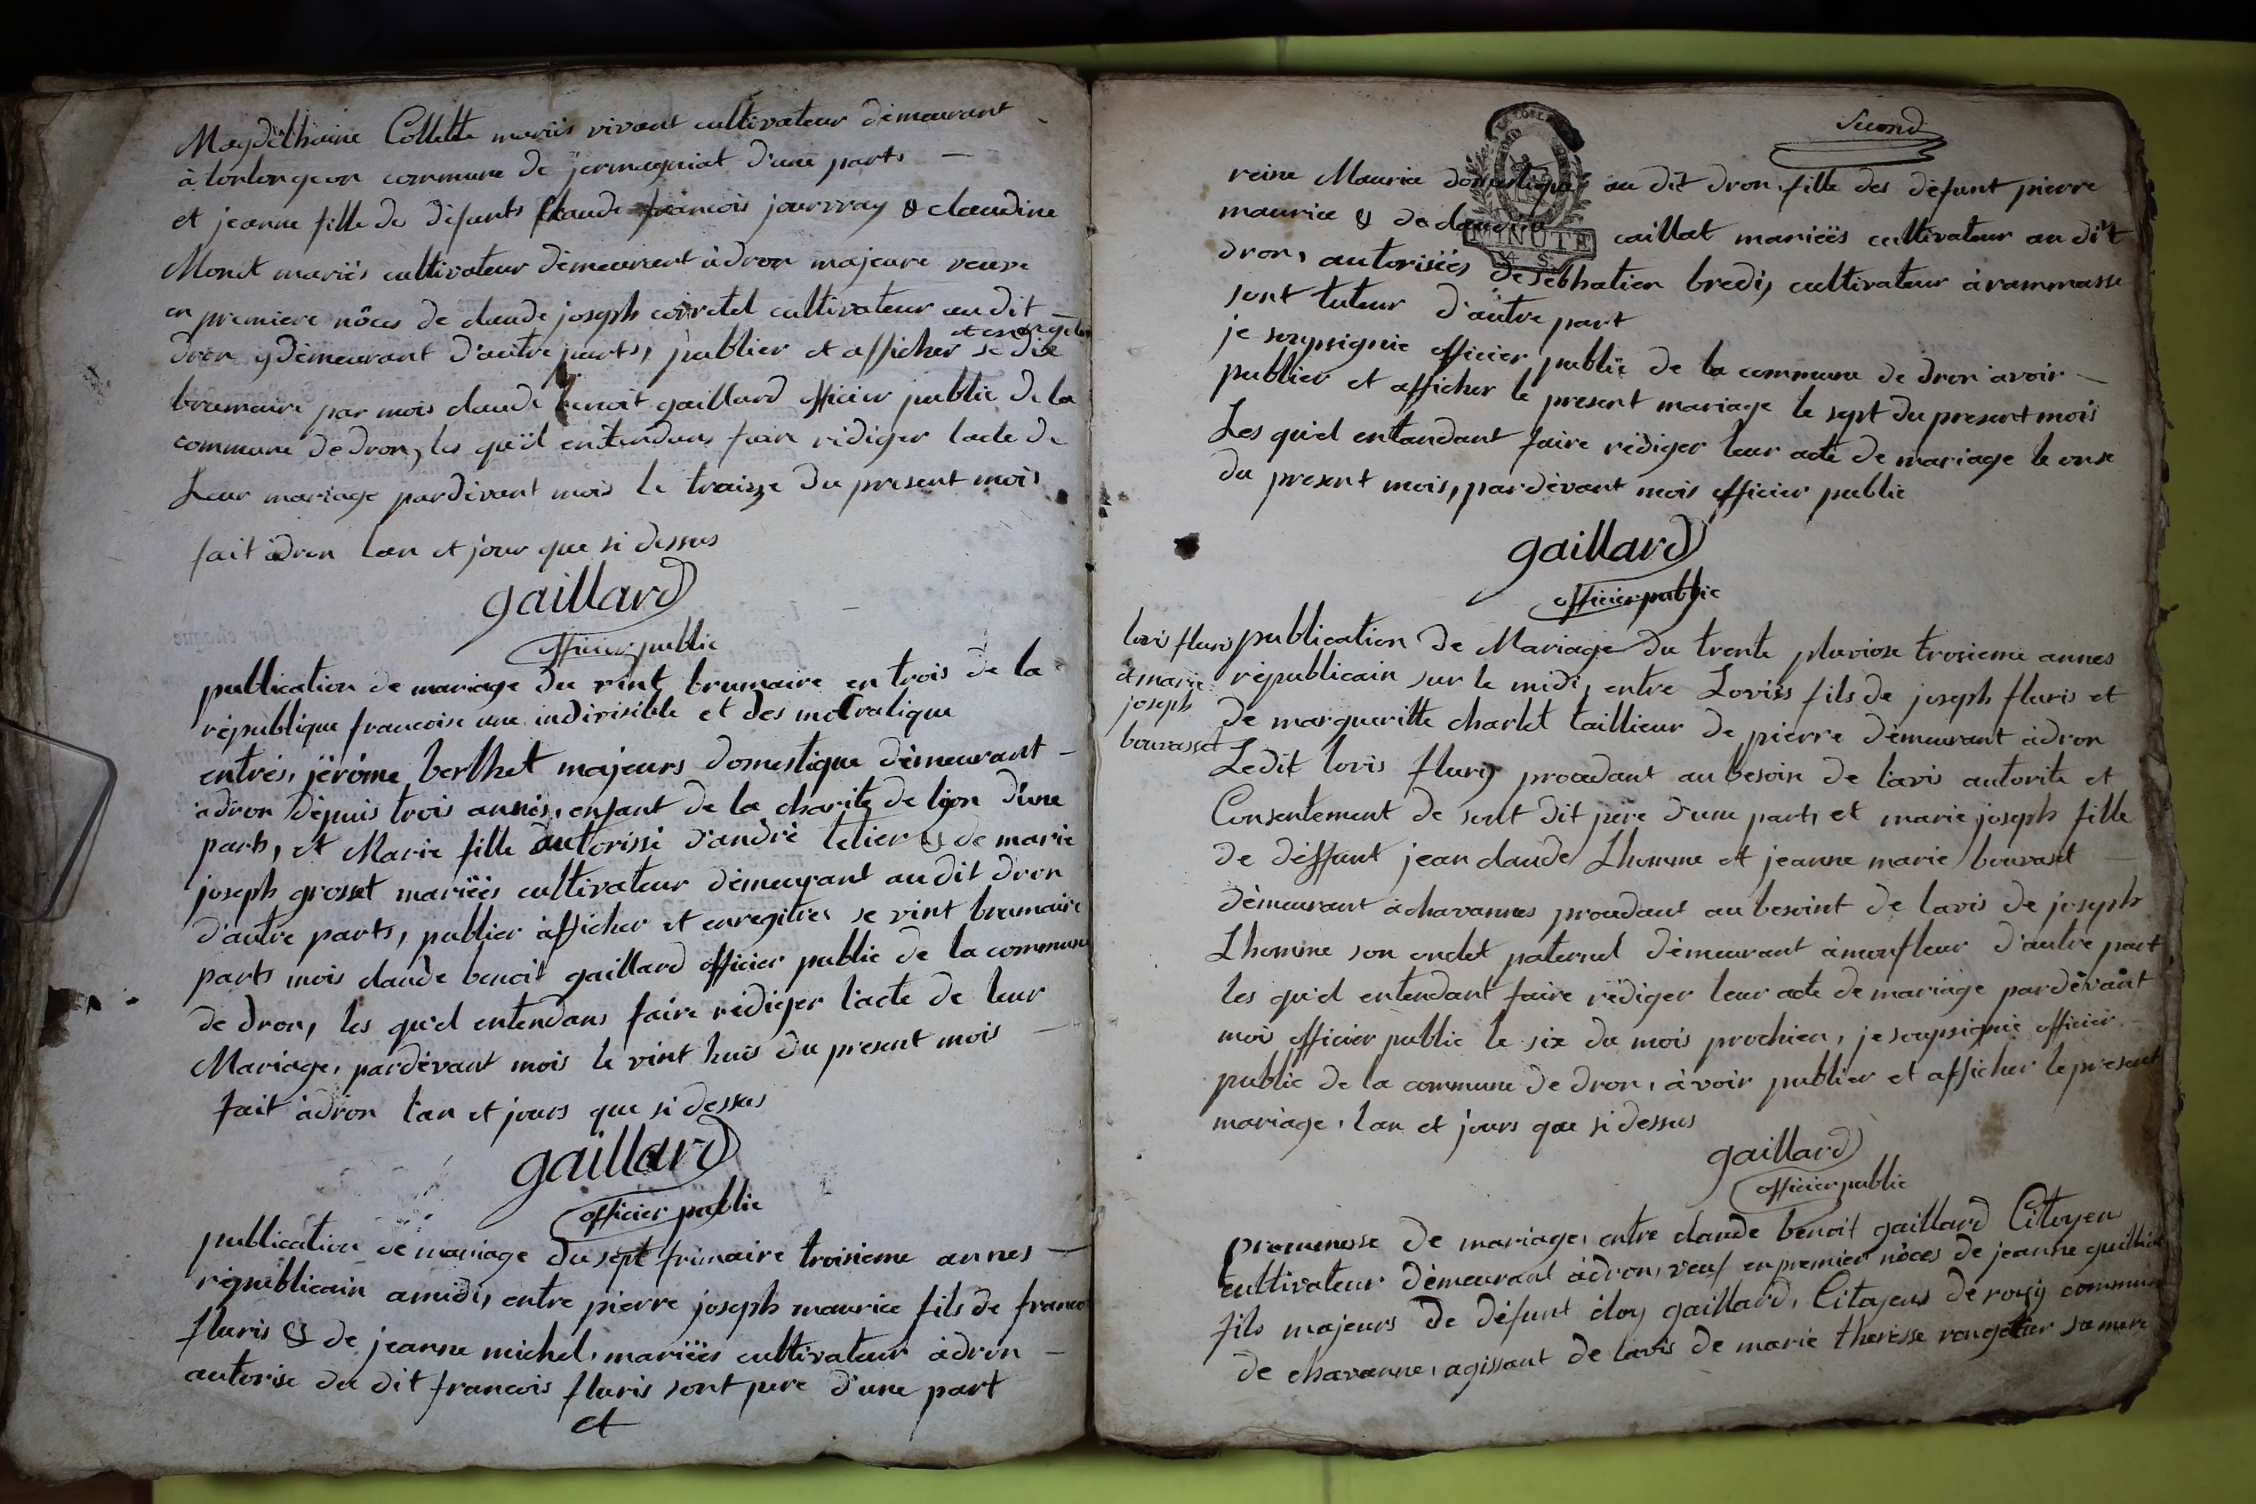 Magdelhaine Collette mariés vivant cultivateur demeurant
à lonlongeon commune de jermagniat d'une parts
et jeanne fille de défunts claude francois jourvray & claudine
Monet mariés cultivateur demeurent àdron majeure veuve
en premiere nôces de claude joseph cultivateur au dit
dron y demeurant d'autre parts, publier et afficher se dix
brumaire par mois claude benoit gaillard officier public de la
commune de dron, les qu'il entendans faire rédiger lacte de
Leur mariage pardevant mois le traisze du present mois
fait àdron lan et jour que si dessus
gaillard
officier public
publication de mariage du vint brumaire en trois de la
république francoise une indivisible et des mocratique
entrés, jérôme berthet majeurs domestique démeurant
àdron dépuis trois annés, enfant de la charite de lyon d'une
parts, et Marie fille autorisé d'andré telier & de marie
joseph grosset mariëés cultivateur démeurant au dit dron
d'autre parts, publier àfficher et enregitrés se vint brumaire
parts mois claude benoit gaillard officier public de la commune
de dron, les qu'el entendans faire rédiger l'acte de leur
Mariage, pardévant mois le vint huis du present mois
fait àdron l'an et jours que si dessus
gaillard
officier public
publication de mariage du sept frimaire troisieme annes
républicain amidi, entre pierre joseph maurice fils de franco
fluris & de jeanne michel, mariëés cultivateur àdron
autorise du dit francois fluris sont pere d'une part
et
Second
MINUTE
4 S
reine Maurice domestique au dit dron, fille des défunt pierre
maurice & de caillat mariëés cultivateur au dit
dron, autorisëés de sebhatien bredi, cultivateur àrammasse
sont tuteur d'autre part
je soupsignie officier public de la commune de dron avoir
publier et afficher le present mariage le sept du present mois
Les qu'el entandant faire rédiger leur acte de mariage le onse
du present mois, pardévant mois officier public
gaillard
officier public
lovis fluris
et marie
joseph
bouvasset
publication de Mariage du trente pluviose trosieme annes
républicain sur le midi, entre Loviss fils de joseph fluris et
de margueritte charlet taillieur de pierre démeurant àdron
Ledit lovis flury procedant au besoin de l'avis autorite et
Consentement de sont dit père d'une part, et marie joseph fille
de déffunt jean claude Lhomme et jeanne marie bouvaset
démeurant àchavannes procedant au besoint de lavis de joseph
Lhomme son onclet paternel démeurant àmonfleur d'autre part
les qu'el entendant faire rédiger leur acte de mariage pardévant
mois officier public le six du mois prochien, je soupsignie officier
public de la commune de dron, àvoir publier et afficher le present
mariage, lan et jours que si dessus
gaillard
officier public
promenesse de mariage, entre claude benoit gaillard Citoyen
cultivateur démeurant àdron, veuf en premier nôces de jeanne
fils majeurs de défunt éloy gaillard, Citoyens de commune
de chavanne, agissant de lavis de marie theresse samere